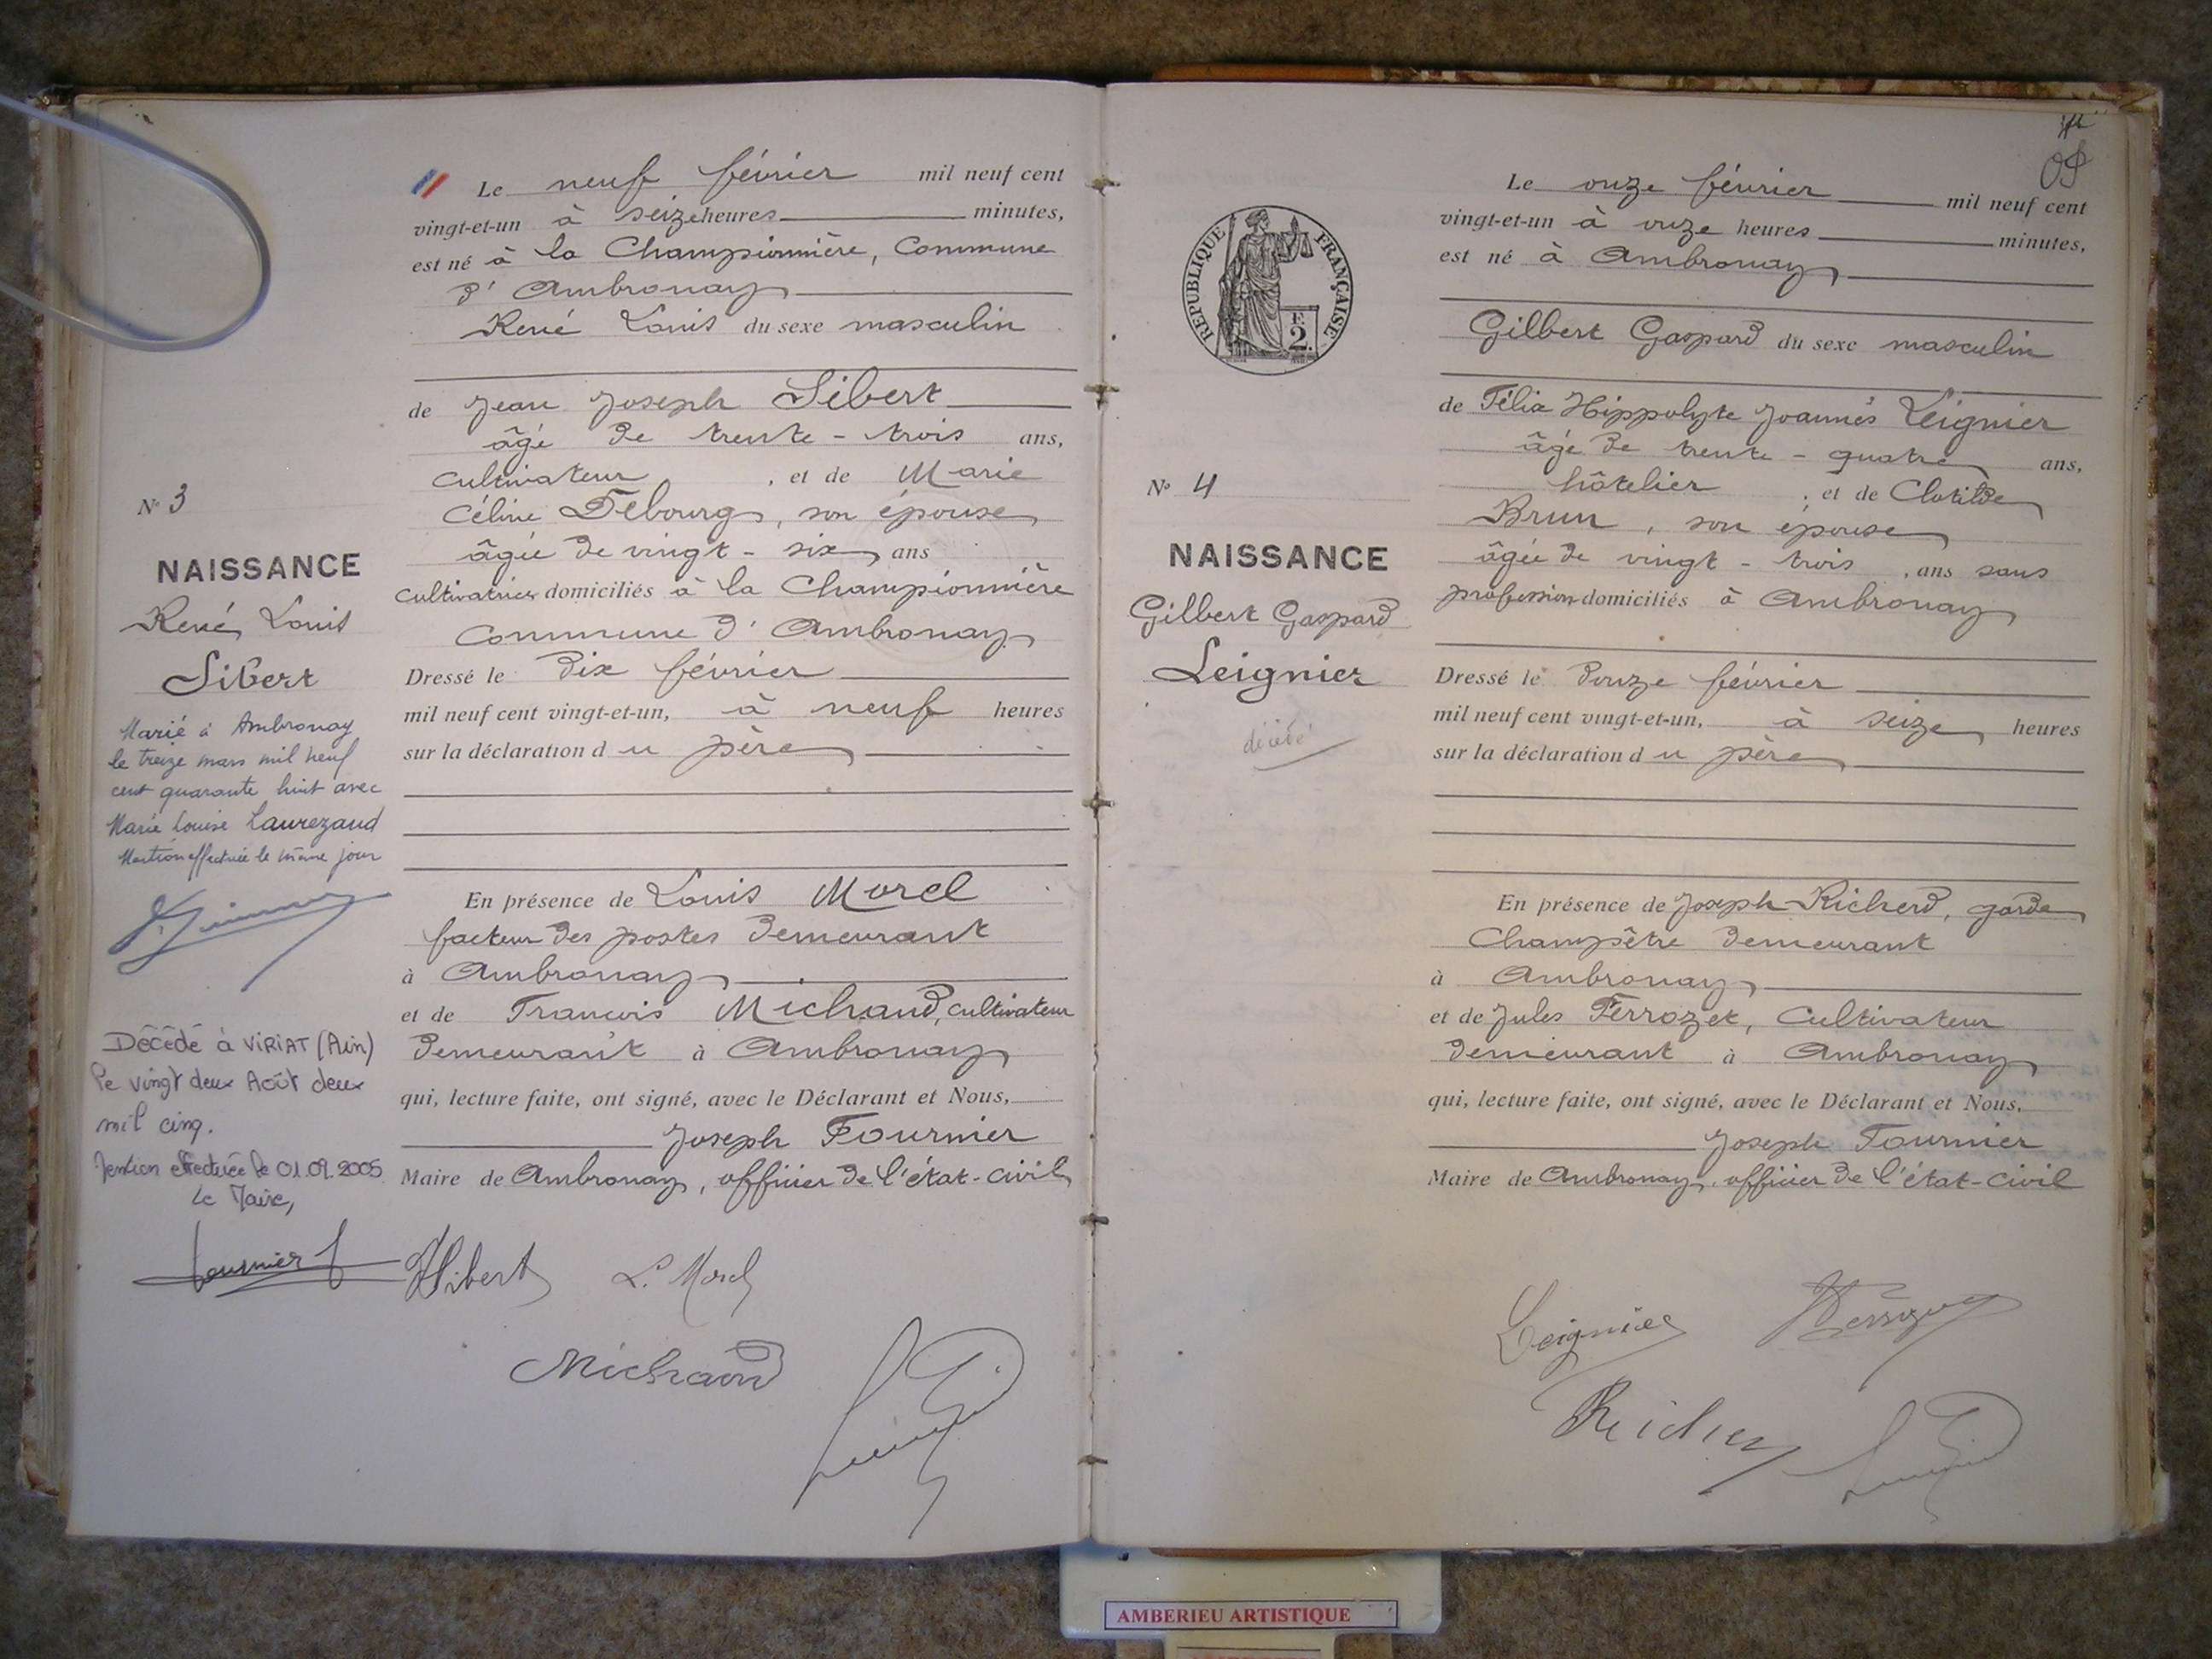 Le neuf février mil neuf cent
vingt-et-un à seize heures minutes,
est né à la Championnière, Commune
d'Ambronay
René Louis du sexe masculin
de Jean Joseph Sibert
âgé de trente-trois ans,
cultivateur, et de Marie
Céline Debourg, son épouse
âgée de vingt-six ans
cultivatrice domiciliés à la Championnière
Commune d'Ambronay
Dressé le dix février
mil neuf cent vingt-et-un, à neuf heures
sur la déclaration du père
En présence de Louis Morel
facteur des postes demeurant
à Ambronay
et de Francois Michaud, cultivateur
demeurant à Ambronay
qui, lecture faite, ont signé, avec le Déclarant et Nous,
Joseph Fournier
Maire de Ambronay, officier de l'état-civil
Sibert L. Morel
Michaud
N° 3
NAISSANCE
René Louis
Sibert
Marié à Ambronay
le treize mars mil neuf
cent quarante huit avec
Marie Louise Laurezaud
Mention effectuée le même jour
Décédé à VIRIAT (Ain)
le vingt deux Août deux
mil cinq.
Mention effectuée le 01.09.2005
Le Maire,
Fournier J
Le onze février mil neuf cent
vingt-et-un à onze heures minutes,
est né à Ambronay
Gilbert Gaspard du sexe masculin
de Félix Hippolyte Joannès Leignier
âgé de trente-quatre ans,
hôtelier, et de Clotilde
Brun, son épouse
âgée de vingt-trois, ans sans
profession domiciliés à Ambronay
Dressé le douze février
mil neuf cent vingt-et-un, à seize heures
sur la déclaration du père
En présence de Joseph Richerd, garde
Champêtre demeurant
à Ambronay
et de Jules Ferrozet, Cultivateur
demeurant à Ambronay
qui, lecture faite, ont signé, avec le Déclarant et Nous,
Joseph Fournier
Maire de Ambronay, officier de l'état-civil
Leignier
REPUBLIQUE FRANÇAISE
F.
2.
N° 4
NAISSANCE
Gilbert Gaspard
Leignier
décédé
AMBERIEU ARTISTIQUE